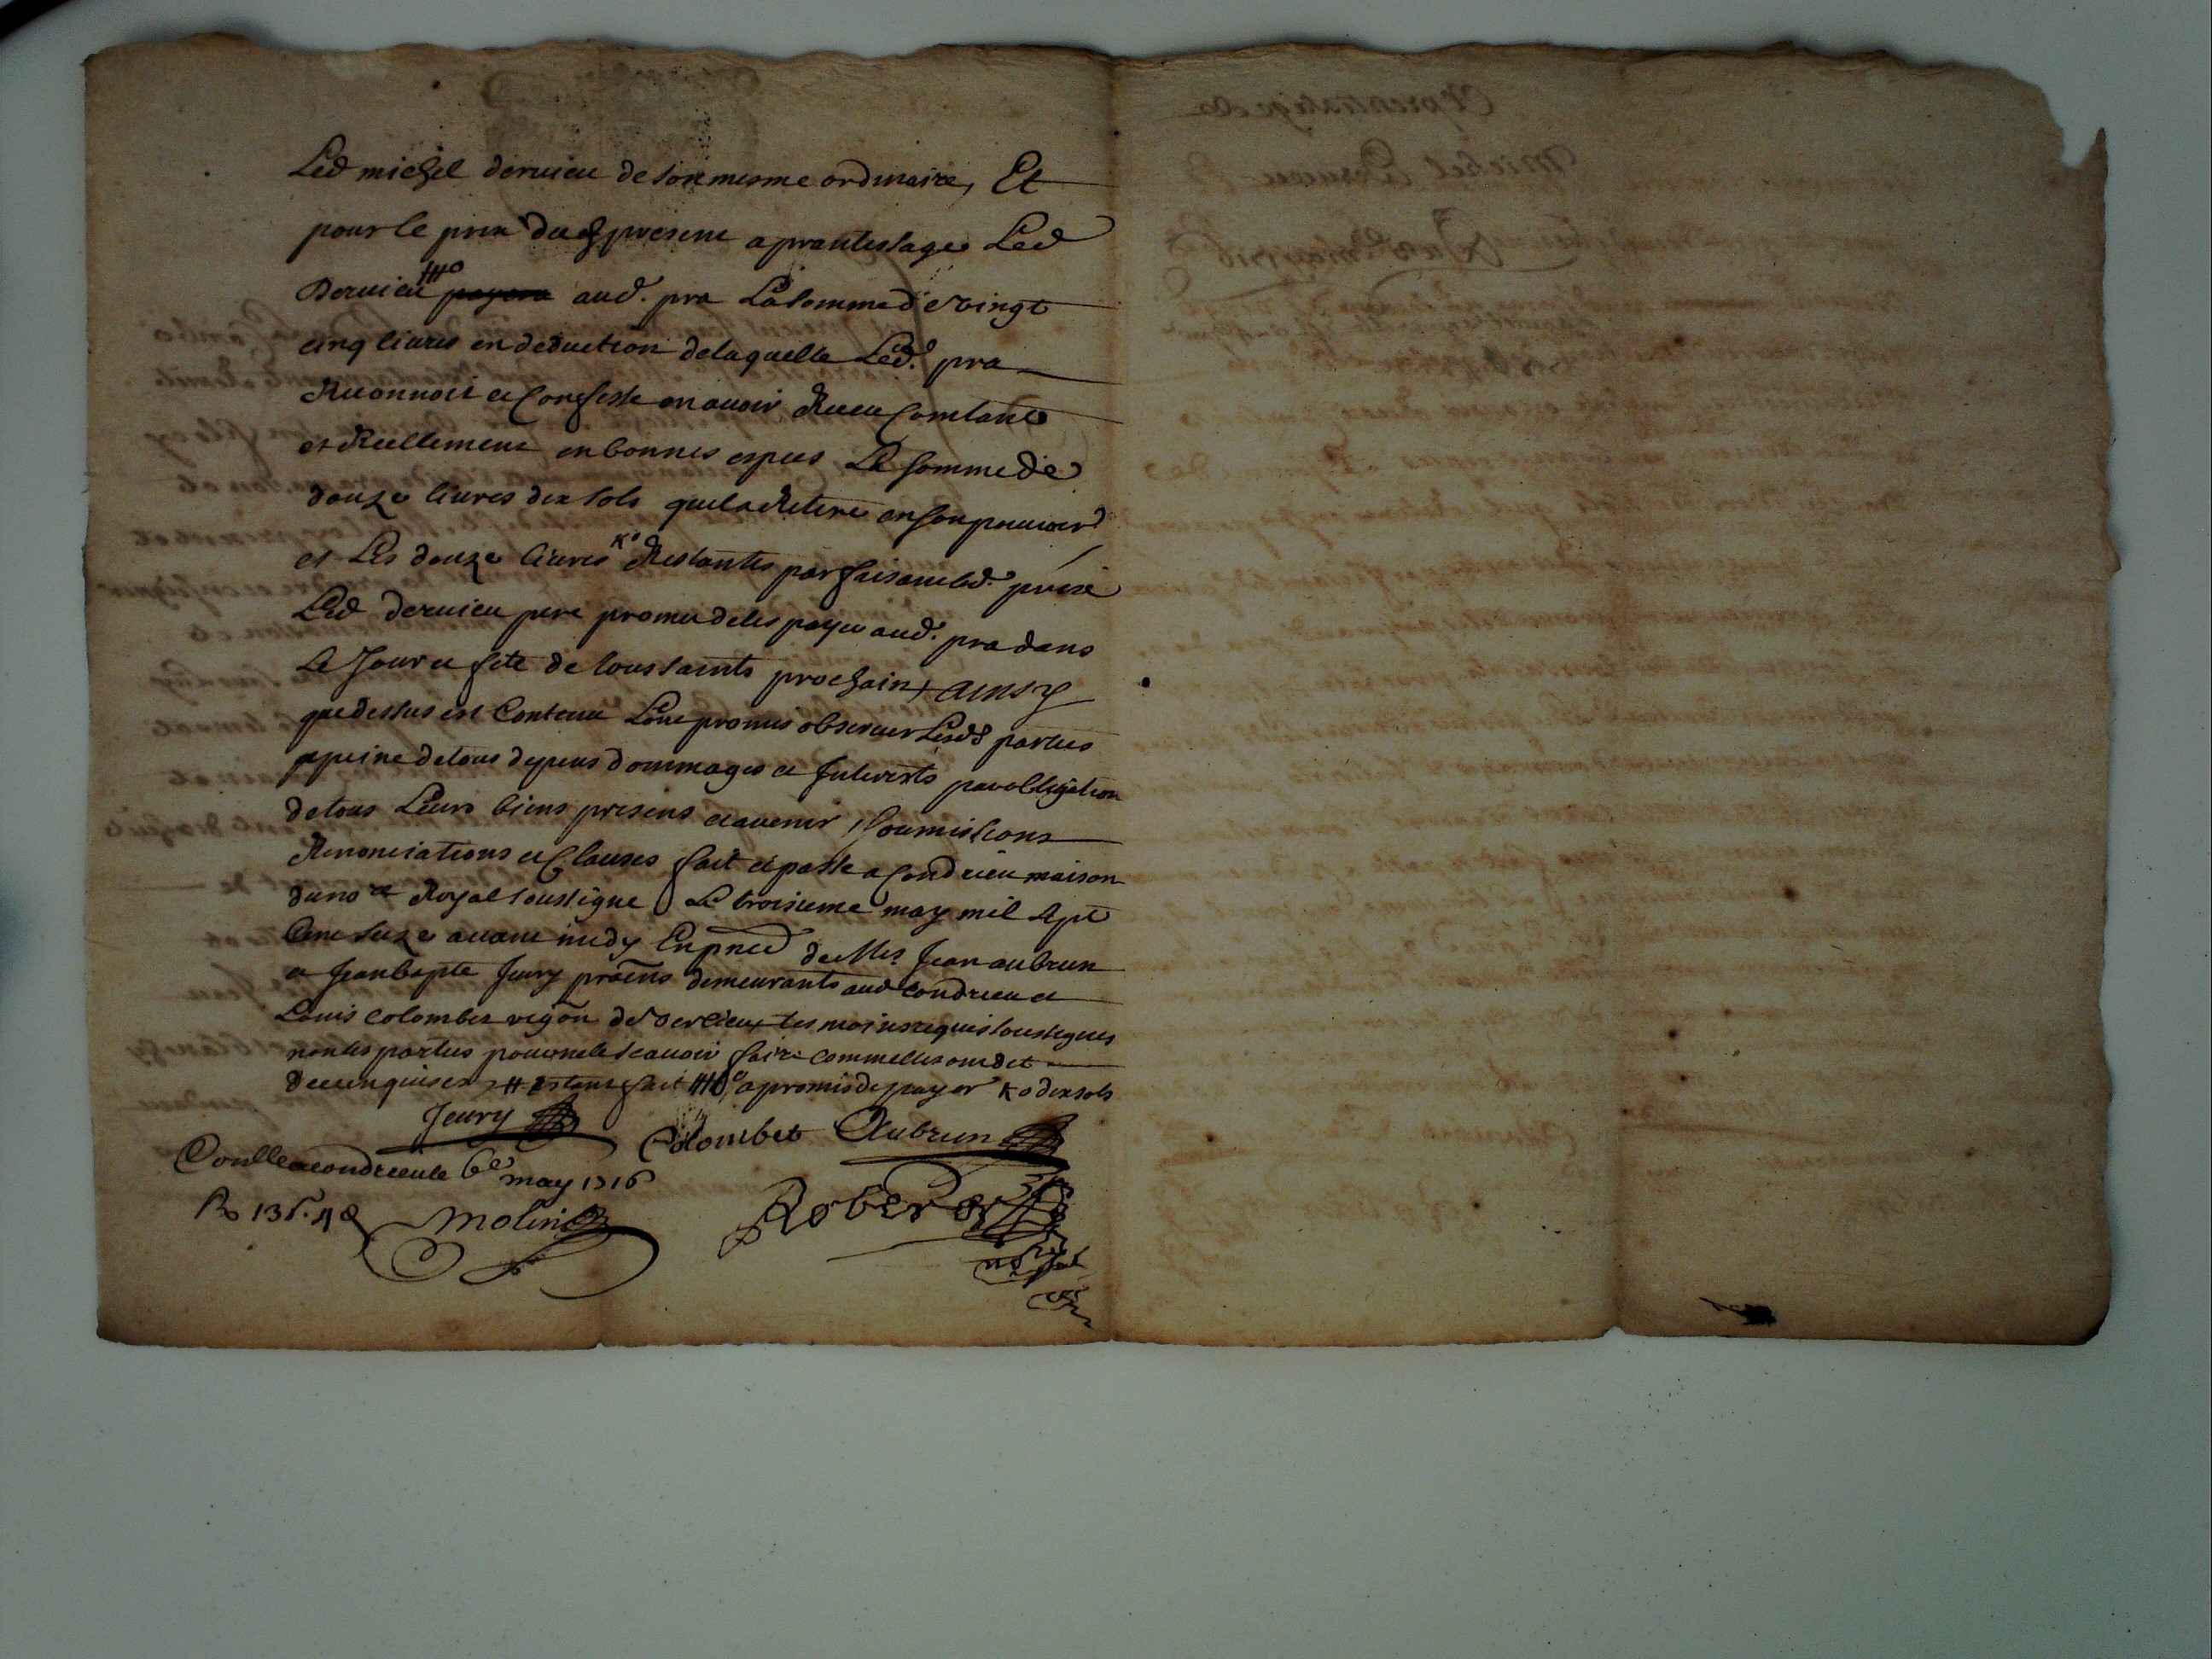 Led michel deruieu de son mesme ordinaire, Et
pour le prix du present aprantissage Led
Deruieu ttto payera aud. pra La somme de vingt
cinq liures en deduction de laquelle Led. pra
Reconnoit et Confesse en auoir Receu Comtant
et Reellement en bonnes espees La somme de
douze liures dix sols quil a Retiré en son pouuoir
et Les douze liures Ko Restantes parfaisant led. prix
Led deruieu pere promet de les payer aud. pra dans
Le Jour et fete de toussaints prochain + ainsy
que dessus est Contenu L'ont promis obseruer Lesd parties
a peine de tous depens dommages et Interests par obligation
de tous Leurs biens presens et auenir, soumissions
Renonciations et Clauses fait et passé a Condrieu maison
du nore Royal soussigné Le troisieme may mil sept
Cent seize auant midy En pned de Mes Jean aubrun
et Jean bapte Jeury pratiens demeurants aud Condrieu et
Louis Colombet vigon de Verlieu tesmoins requis soussignes
non les parties pour ne le scauoir faire comme elles ont dit
de ce enquises # estant fait ttto a promis de payer Ko dix sols
Jeury Colombet Aubrun
Conllé a condrieu le 6e may 1716
Ro 13 s. 4 d Molin
Robert
no Royal